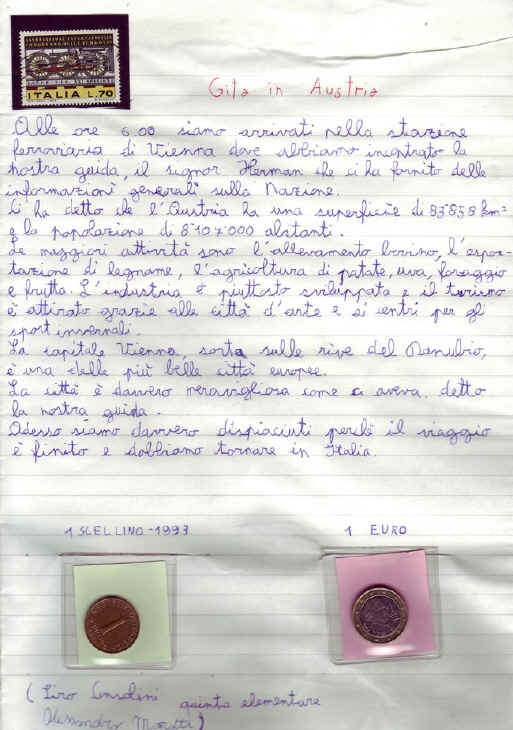 ITALIA L.70
Gita in Austria
Alle ore 6.00 siamo arrivati nella stazione
ferroviaria di Vienna dove abbiamo incontrato la
nostra guida, il signor Herman che ci ha fornito delle
informazioni generali sulla Nazione.
Ci ha detto che l'Austria ha una superficie di 83'858 km²
e la popolazione di 8'107'000 abitanti.
Le maggiori attività sono l'allevamento bovino, l'espor-
tazione di legname, l'agricoltura di patate, uva, foraggio
e frutta. L'industria è piuttosto sviluppata e il turismo
è attirato grazie alle città d'arte e ai centri per gli
sport invernali.
La capitale Vienna, sorta sulle rive del Danubio,
è una delle più belle città europee.
La città è davvero meravigliosa come ci aveva detto
la nostra guida.
Adesso siamo davvero dispiaciuti perché il viaggio
è finito e dobbiamo tornare in Italia.
1 SCELLINO-1993
1 EURO
1
( quinta elementare
Alessandro )